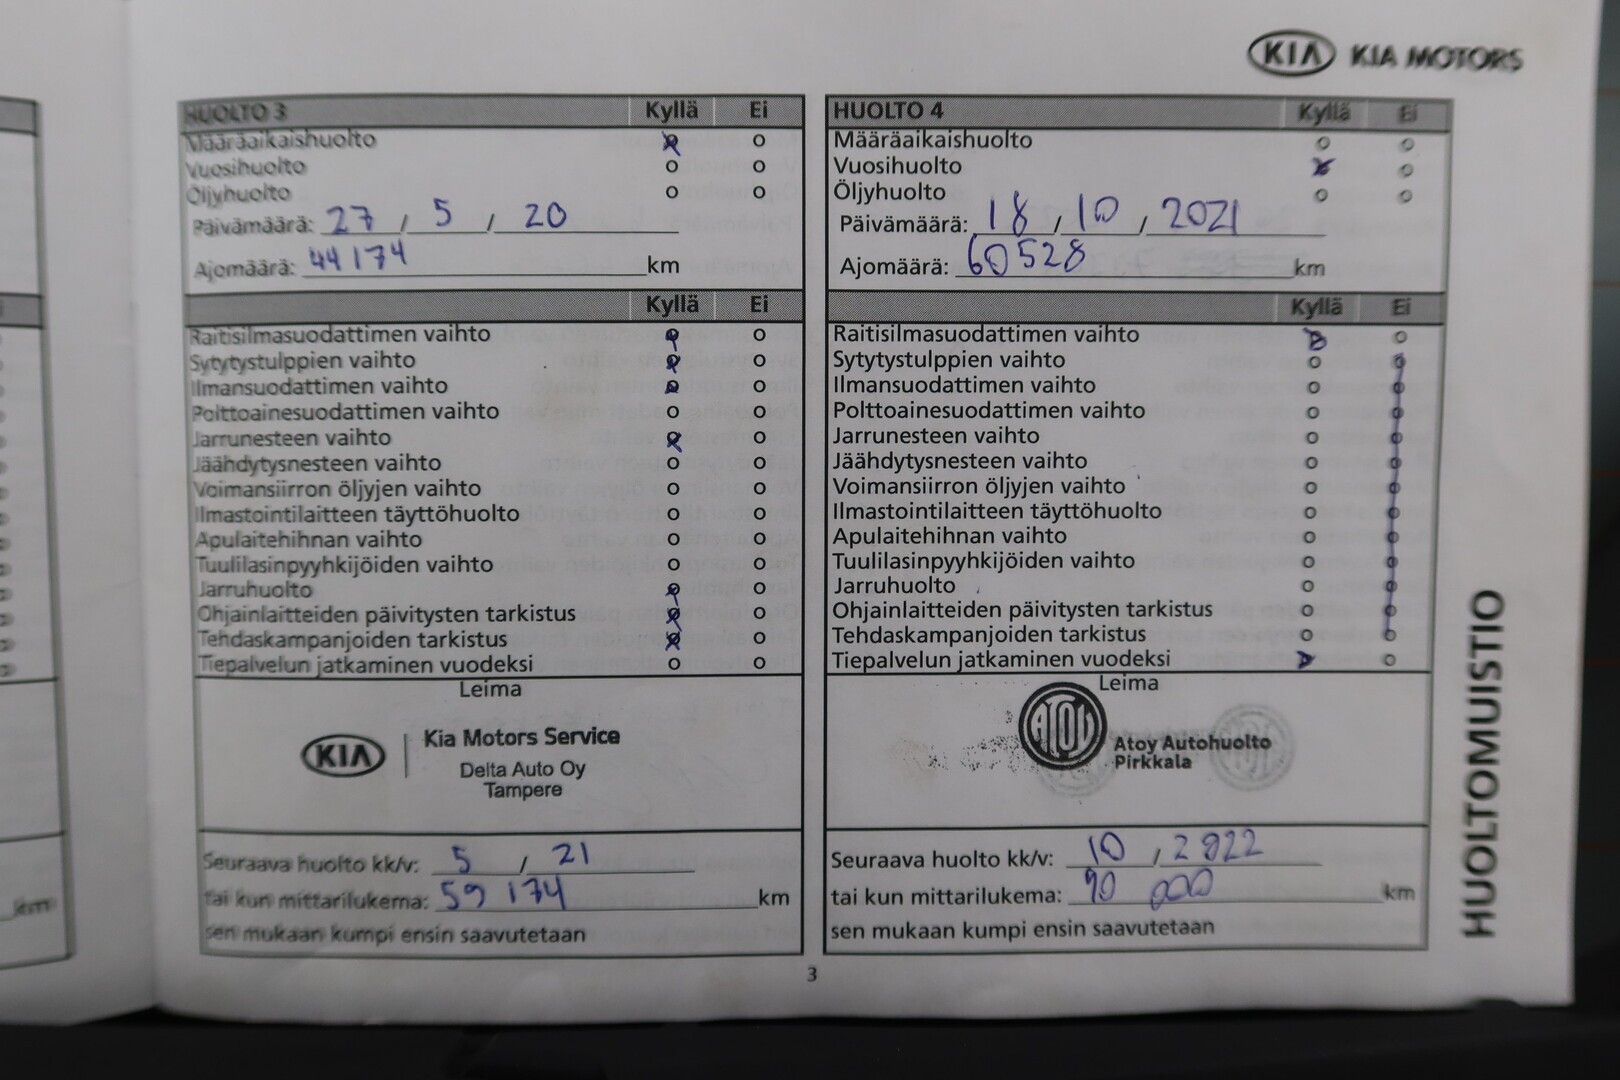 KIA KIA MOTORS
HUOLTO 3 Kyllä Ei
Määräaikaishuolto
Vuosihuolto
Öljyhuolto
Päivämäärä: 27 / 5 / 20
Ajomäärä: 44 174 km
Kyllä Ei
Raitisilmasuodattimen vaihto
Sytytystulppien vaihto
Ilmansuodattimen vaihto
Polttoainesuodattimen vaihto
Jarrunesteen vaihto
Jäähdytysnesteen vaihto
Voimansiirron öljyjen vaihto
Ilmastointilaitteen täyttöhuolto
Apulaitehihnan vaihto
Tuulilasinpyyhkijöiden vaihto
Jarruhuolto
Ohjainlaitteiden päivitysten tarkistus
Tehdaskampanjoiden tarkistus
Tiepalvelun jatkaminen vuodeksi
Leima
KIA Kia Motors Service
Delta Auto Oy
Tampere
Seuraava huolto kk/v: 5 / 21
tai kun mittarilukema: 59 174 km
sen mukaan kumpi ensin saavutetaan
HUOLTO 4 Kyllä Ei
Määräaikaishuolto
Vuosihuolto
Öljyhuolto
Päivämäärä: 18 / 10 / 2021
Ajomäärä: 60528 km
Kyllä Ei
Raitisilmasuodattimen vaihto
Sytytystulppien vaihto
Ilmansuodattimen vaihto
Polttoainesuodattimen vaihto
Jarrunesteen vaihto
Jäähdytysnesteen vaihto
Voimansiirron öljyjen vaihto
Ilmastointilaitteen täyttöhuolto
Apulaitehihnan vaihto
Tuulilasinpyyhkijöiden vaihto
Jarruhuolto
Ohjainlaitteiden päivitysten tarkistus
Tehdaskampanjoiden tarkistus
Tiepalvelun jatkaminen vuodeksi
Leima
ATOY Atoy Autohuolto
Pirkkala
Seuraava huolto kk/v: 10 / 2022
tai kun mittarilukema: 90 000 km
sen mukaan kumpi ensin saavutetaan
3
HUOLTOMUISTIO
km